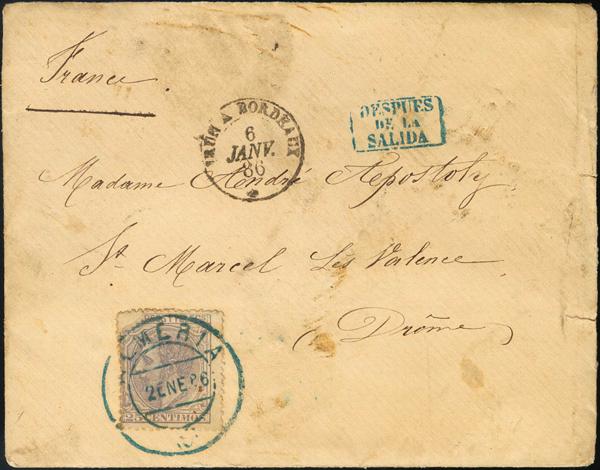 France
IRUN A BORDEAUX
6
JANV.
86
DESPUES
DE LA
SALIDA
Madame André Apostoly
St Marcel Les Valence
(Drôme)
ALMERIA
2 ENE 86
25 CENTIMOS